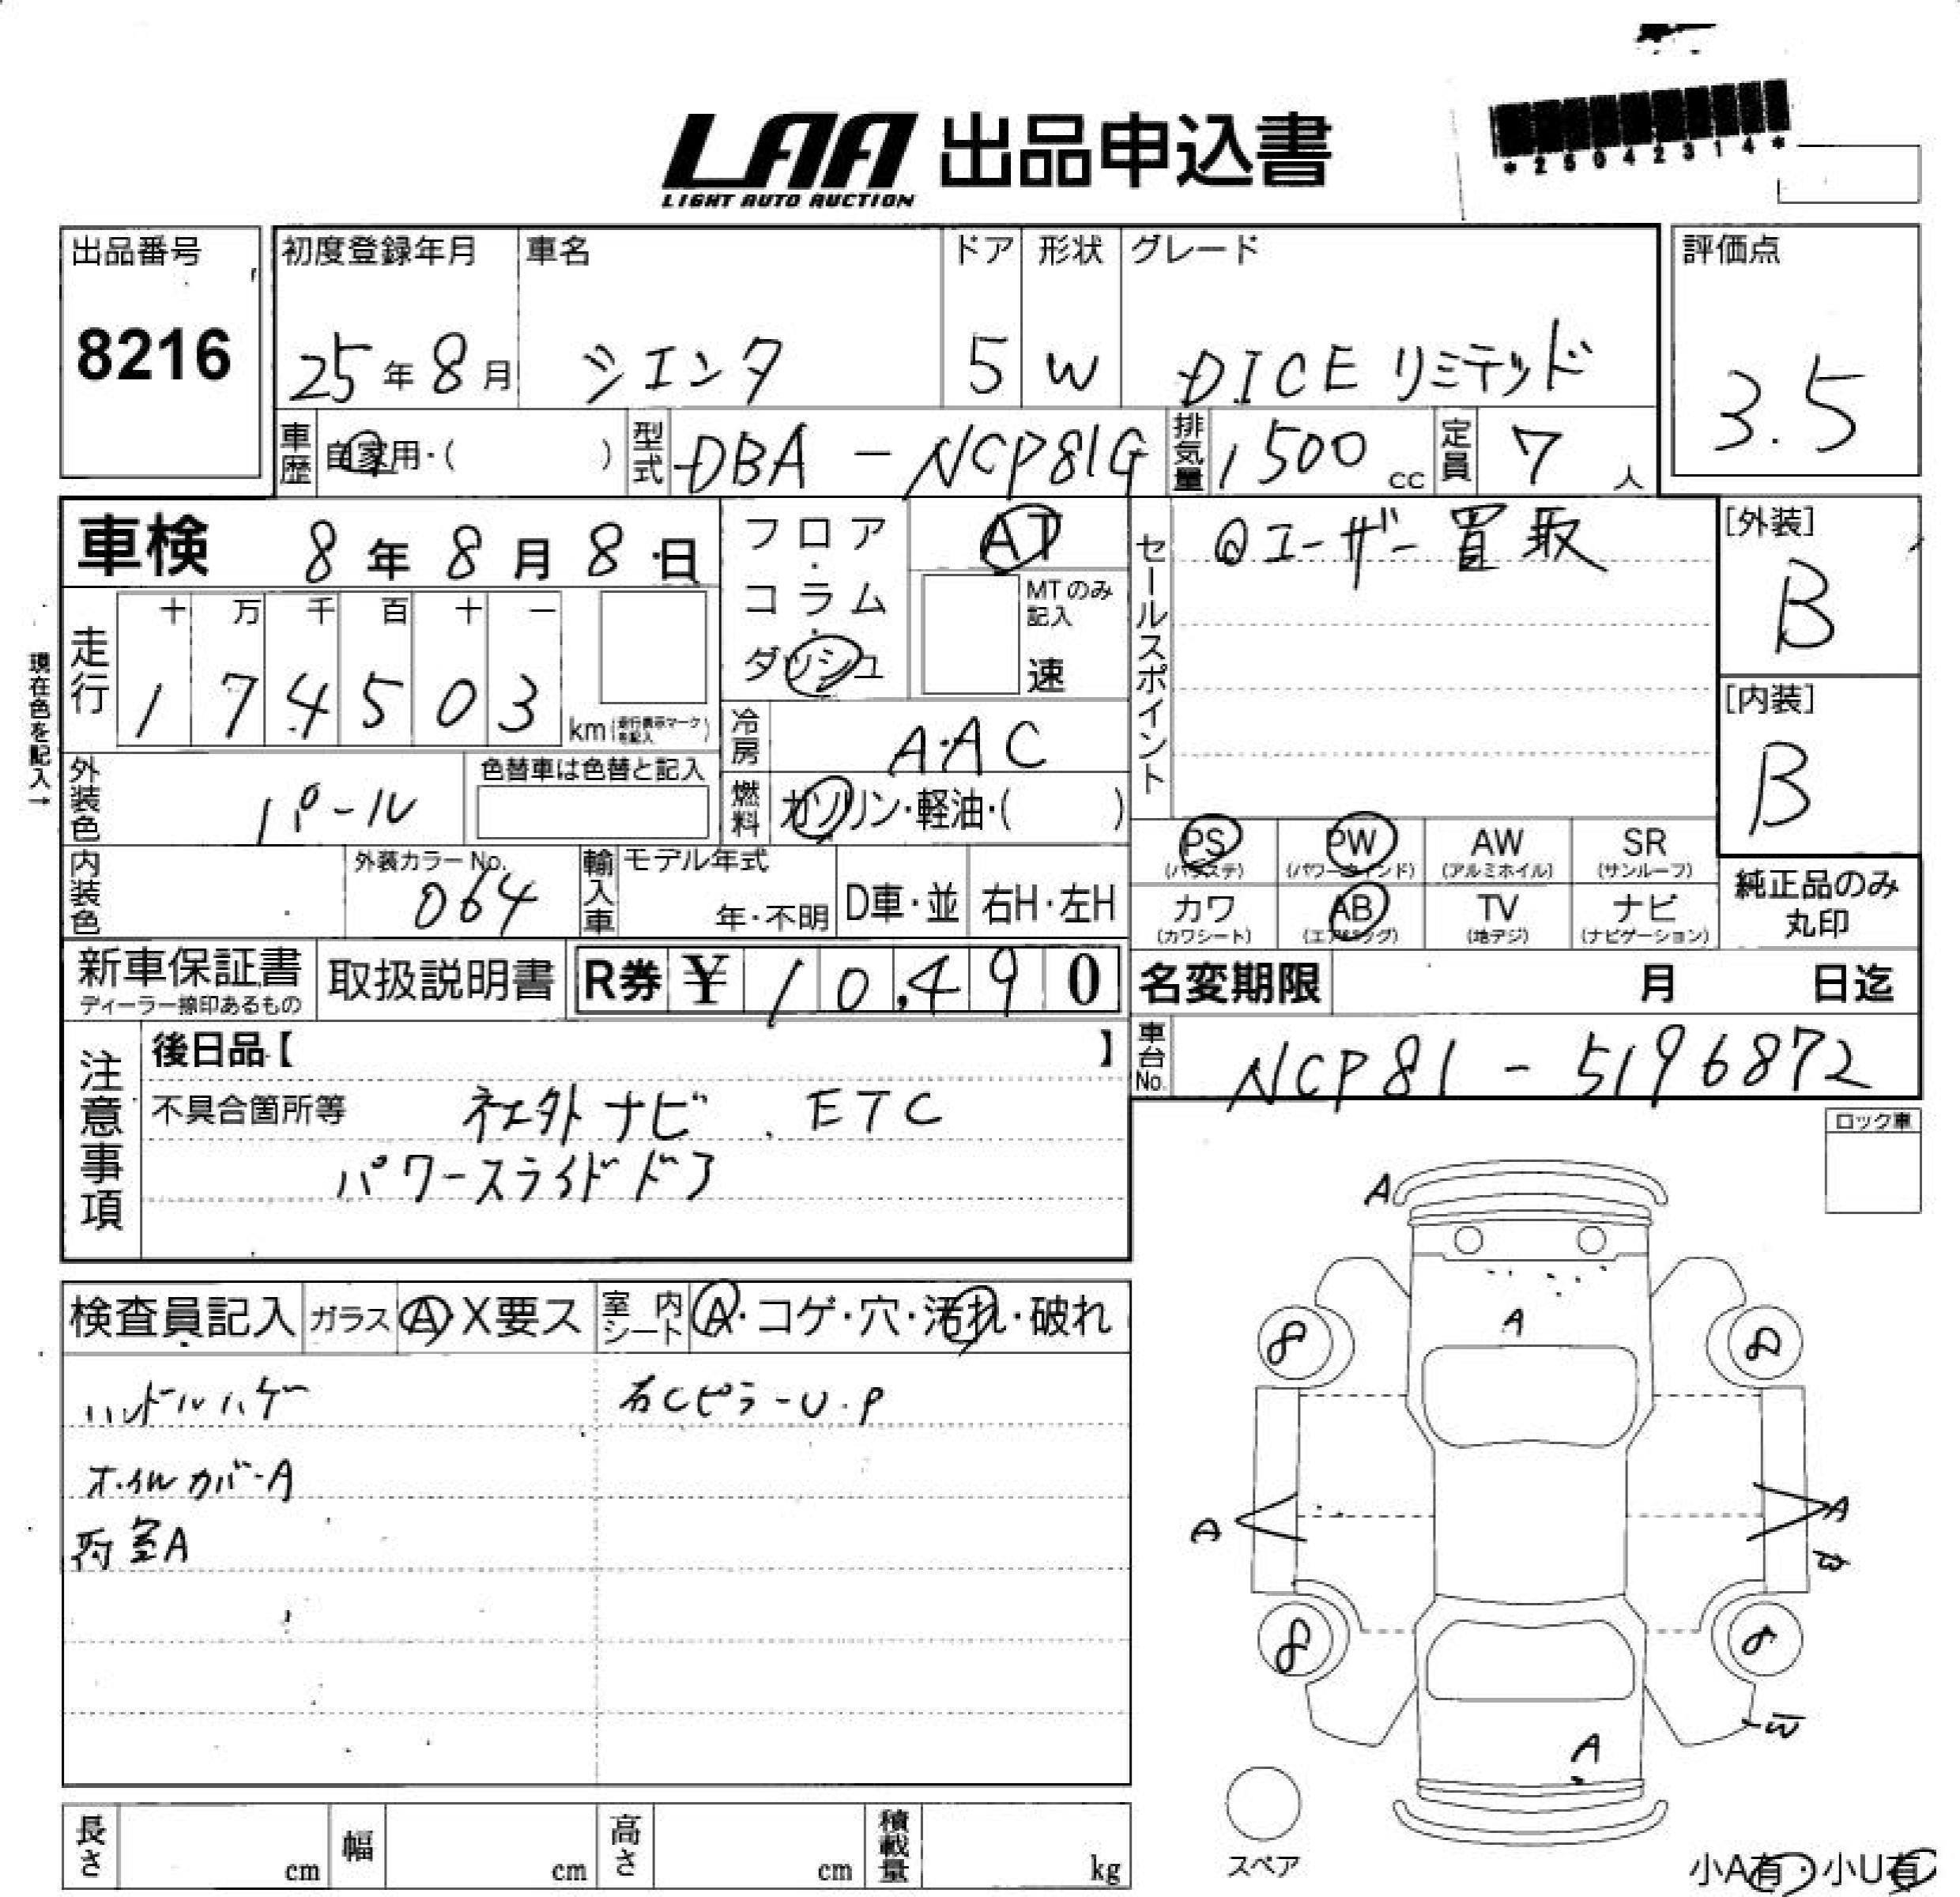 LAA 出品申込書
LIGHT AUTO AUCTION
*25042314*
出品番号
8216
初度登録年月
25年8月
車名
シエンタ
ドア
5
形状
W
グレード
DICE リミテッド
評価点
3.5
車歴 自家用・( )
型式 DBA - NCP81G
排気量 1500 cc
定員 7 人
車検 8年8月8日
フロア・コラム・ダッシュ
AT
MTのみ記入
速
セールスポイント
@ユーザー買取
[外装]
B
[内装]
B
現在色を記入→
走行
十 万 千 百 十 一
1 7 4 5 0 3
km(走行表示マークを記入)
冷房 AAC
外装色 パール
色替車は色替と記入
燃料 ガソリン・軽油・( )
PS (パワステ)
PW (パワーウィンド)
AW (アルミホイル)
SR (サンルーフ)
内装色
外装カラーNo.
064
輸入車
モデル年式
年・不明
D車・並
右H・左H
カワ (カワシート)
AB (エアバッグ)
TV (地デジ)
ナビ (ナビゲーション)
純正品のみ丸印
新車保証書
ディーラー捺印あるもの
取扱説明書
R券 ¥ 10,490
名変期限 月 日迄
車台No. NCP81 - 5196872
注意事項
後日品【 】
不具合箇所等 社外ナビ、ETC
パワースライドドア
ロック車
検査員記入
ガラス A・X要ス
室内シート A・コゲ・穴・汚れ・破れ
ハンドルハゲ
右Cピラ-U.P
ホイルカバーA
荷室A
A
A
8
8
A
A
8
A
スペア
長さ cm
幅 cm
高さ cm
積載量 kg
小A有・小U有